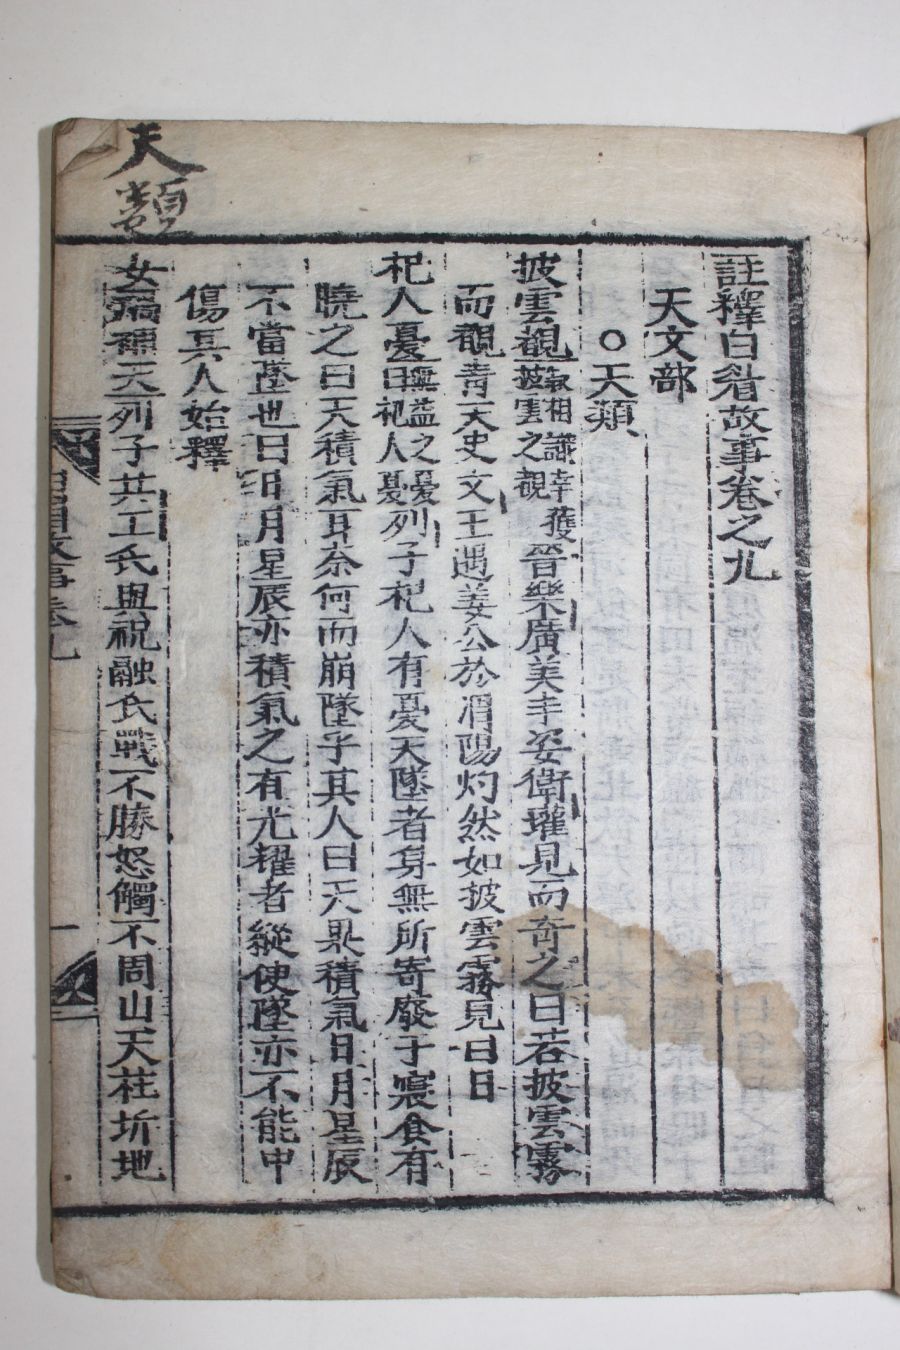 天類
註釋白眉故事卷之九
天文部
○天類
披雲覩 叙相識幸獲披雲之覩 晉樂廣美丰姿衛瓘見而奇之曰若披雲霧
而覩青天史文王遇姜公於渭陽灼然如披雲霧見白日
杞人憂 無益之憂曰杞人憂 列子杞人有憂天墜者身無所寄廢于寢食有
曉之曰天積氣耳奈何而崩墜乎其人曰天果積氣日月星辰
不當墜也曰日月星辰亦積氣之有光耀者縱使墜亦不能中
傷其人始釋
女媧補天 列子共工氏與祝融氏戰不勝怒觸不周山天柱折地
故事卷九
一